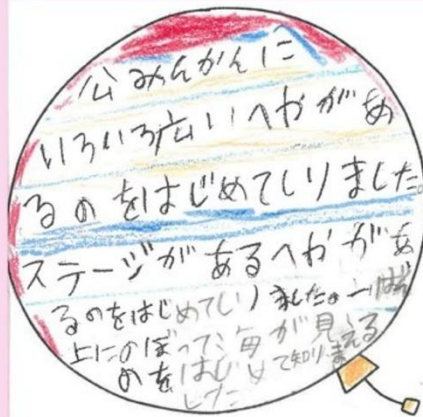 公みんかんに
いろいろ広いへやがあ
るのをはじめてしりました。
ステージがあるへやがあ
るのをはじめてしりました。一ばん
上にのぼって、海が見える
のをはじめて知りま
した